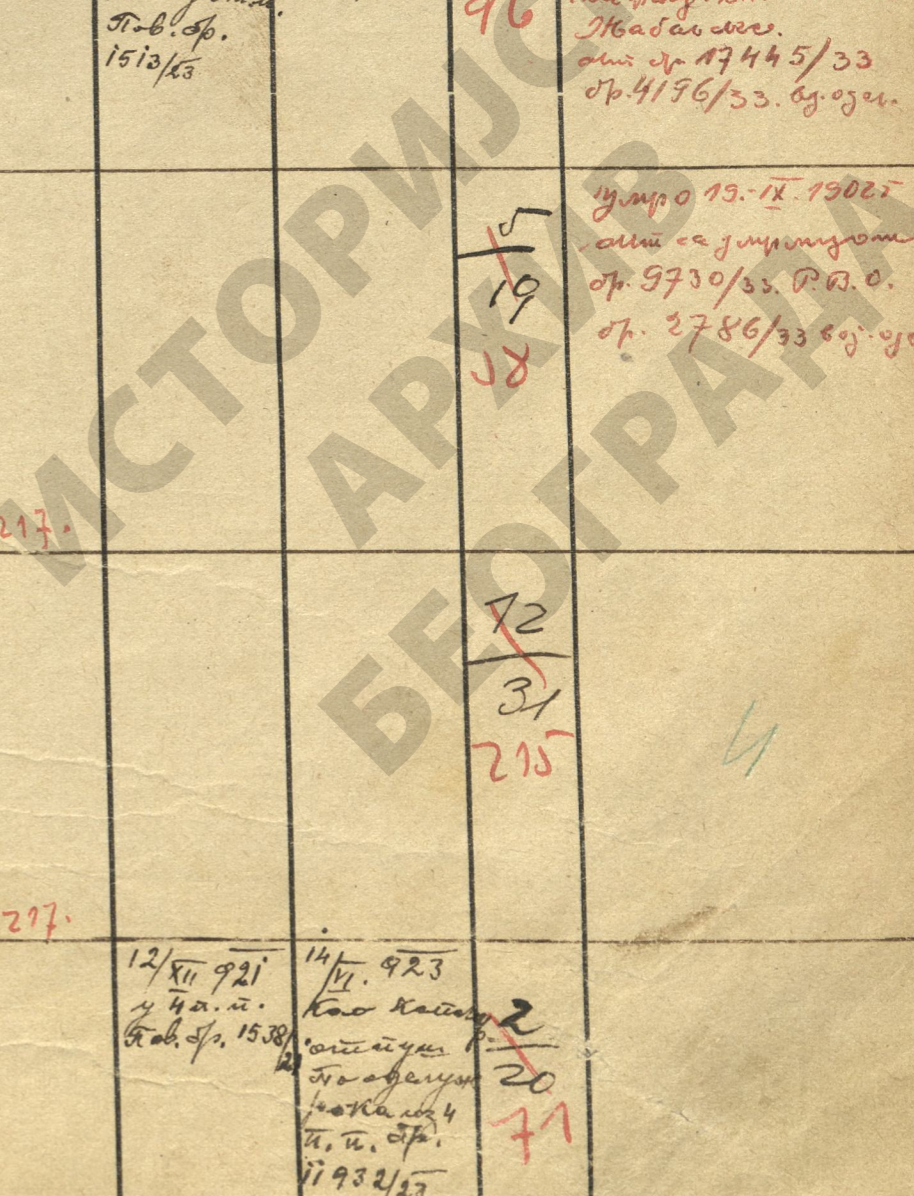 Пов. бр.
1513/23
96
Жабаљске.
акт бр. 17445/33
бр. 4196/33. вој. одел.
умро 19.-IX.
акт са
бр. 9730/33. Р.В.О.
бр. 2786/33 вој.
5
19
58
217.
12
31
215
4
217.
12/XII 921
у 4 п. п.
Пов. бр. 1538/21
14/VI. 923
Као
отпуш
По одслуж
рока из 4
п. п. бр.
11932/23
2
20
71
ИСТОРИЈС
АРХИВ
БЕОГРАДА